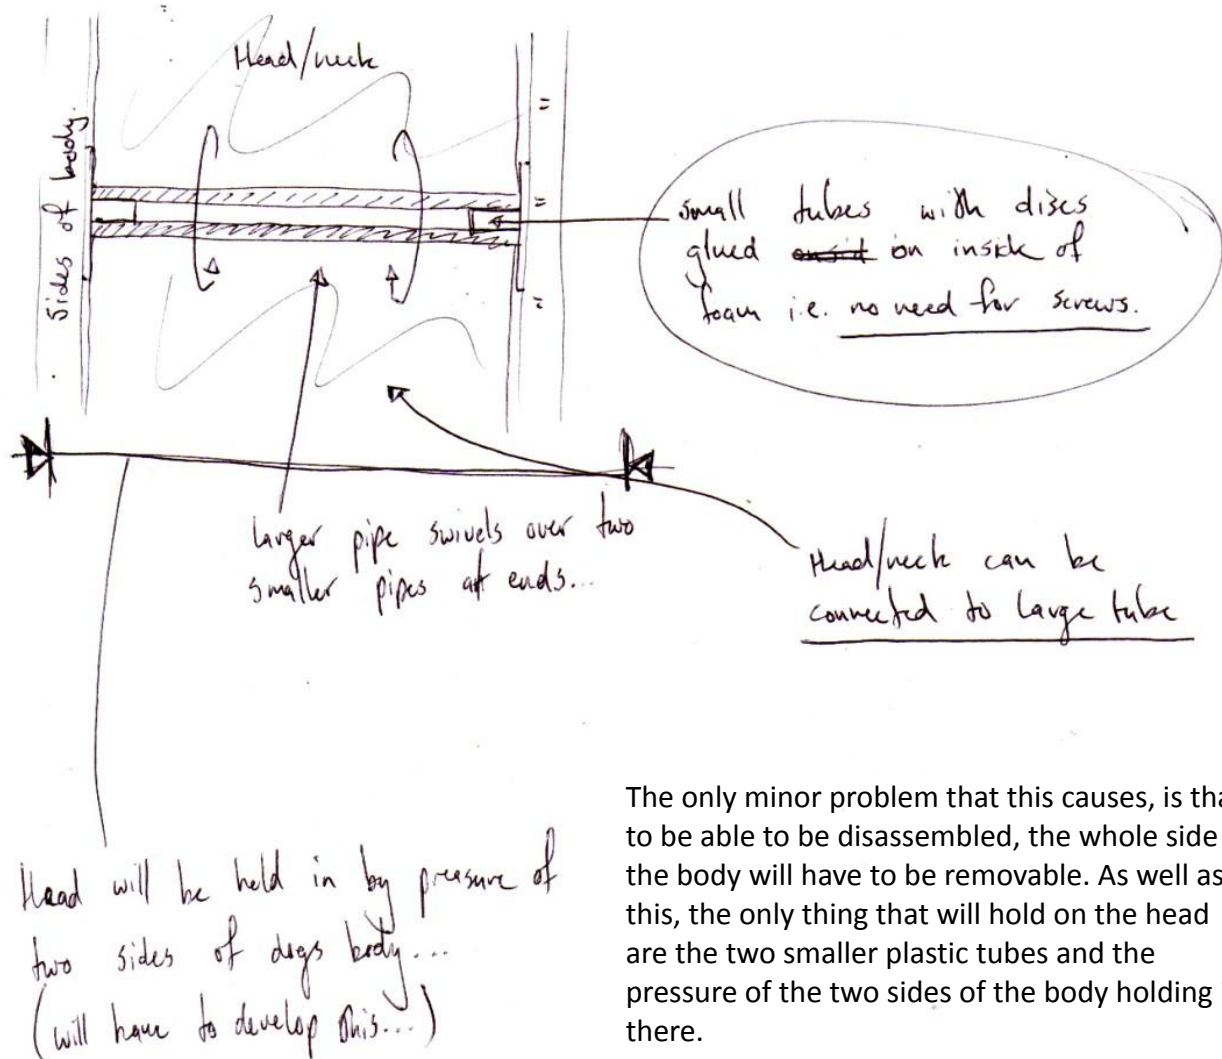 Head/neck
Sides of body.
small tubes with discs
glued onsid on inside of
foam i.e. no need for screws.
larger pipe swivels over two
smaller pipes at ends...
Head/neck can be
connected to large tube
Head will be held in by preasure of
two sides of dogs body...
(will have to develop this...)
The only minor problem that this causes, is tha
to be able to be disassembled, the whole side
the body will have to be removable. As well as
this, the only thing that will hold on the head
are the two smaller plastic tubes and the
pressure of the two sides of the body holding
there.